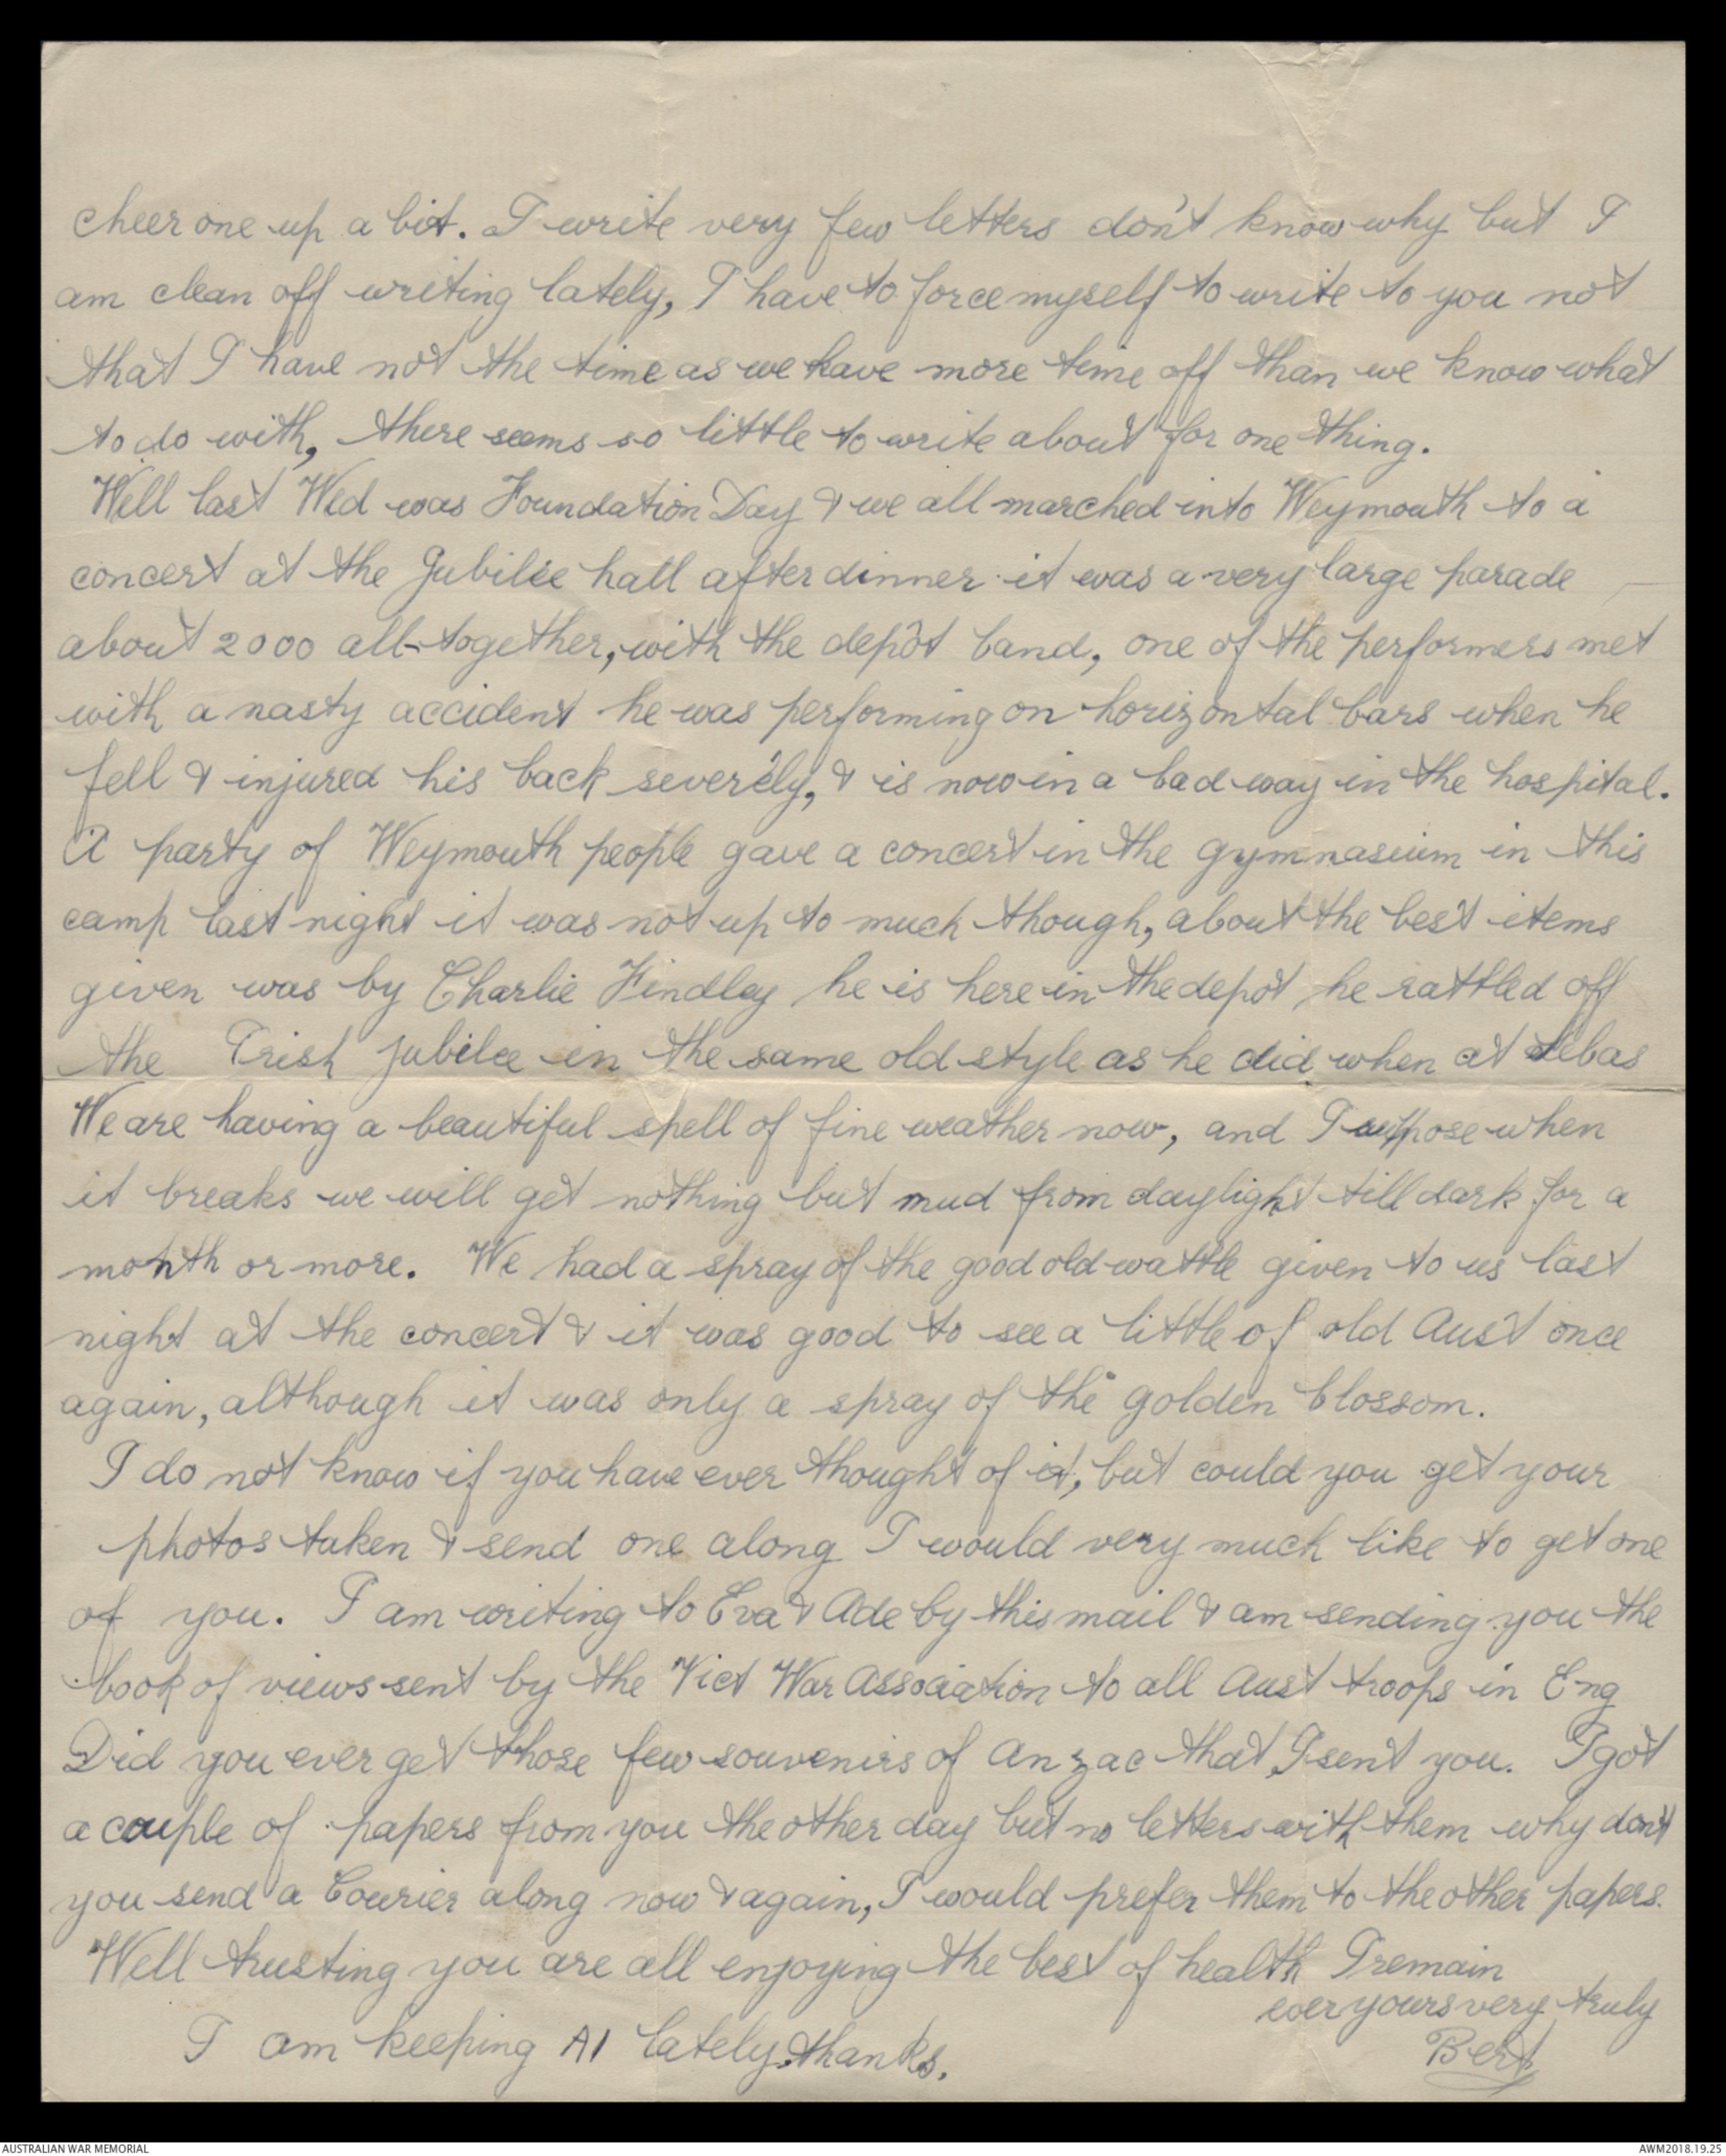 cheer one up a bit. I write very few letters don't know why but I
am clean off writing lately, I have to force myself to write to you not
that I have not the time as we have more time off than we know what
to do with, there seems so little to write about for one thing.
Well last Wed was Foundation Day & we all marched into Weymouth to a
concert at the Jubilee hall after dinner it was a very large parade
about 2000 all-together, with the depôt band, one of the performers met
with a nasty accident he was performing on horizontal bars when he
fell & injured his back severely, & is now in a bad way in the hospital.
A party of Weymouth people gave a concert in the gymnasium in this
camp last night it was not up to much though, about the best items
given was by Charlie Findlay he is here in the depot he rattled off
the Irish jubilee in the same old style as he did when at Sebas
We are having a beautiful spell of fine weather now, and I suppose when
it breaks we will get nothing but mud from daylight till dark for a
month or more. We had a spray of the good old wattle given to us last
night at the concert & it was good to see a little of old Aust once
again, although it was only a spray of the golden blossom.
I do not know if you have ever thought of it, but could you get your
photos taken & send one along I would very much like to get one
of you. I am writing to Eva & Ade by this mail & am sending you the
book of views sent by the Vict War Association to all Aust troops in Eng
Did you ever get those few souvenirs of Anzac that I sent you. I got
a couple of papers from you the other day but no letters with them why don't
you send a Courier along now & again, I would prefer them to the other papers.
Well trusting you are all enjoying the best of health I remain
ever yours very truly
I am keeping A1 lately thanks.
Bert
AUSTRALIAN WAR MEMORIAL
AWM2018.19.25